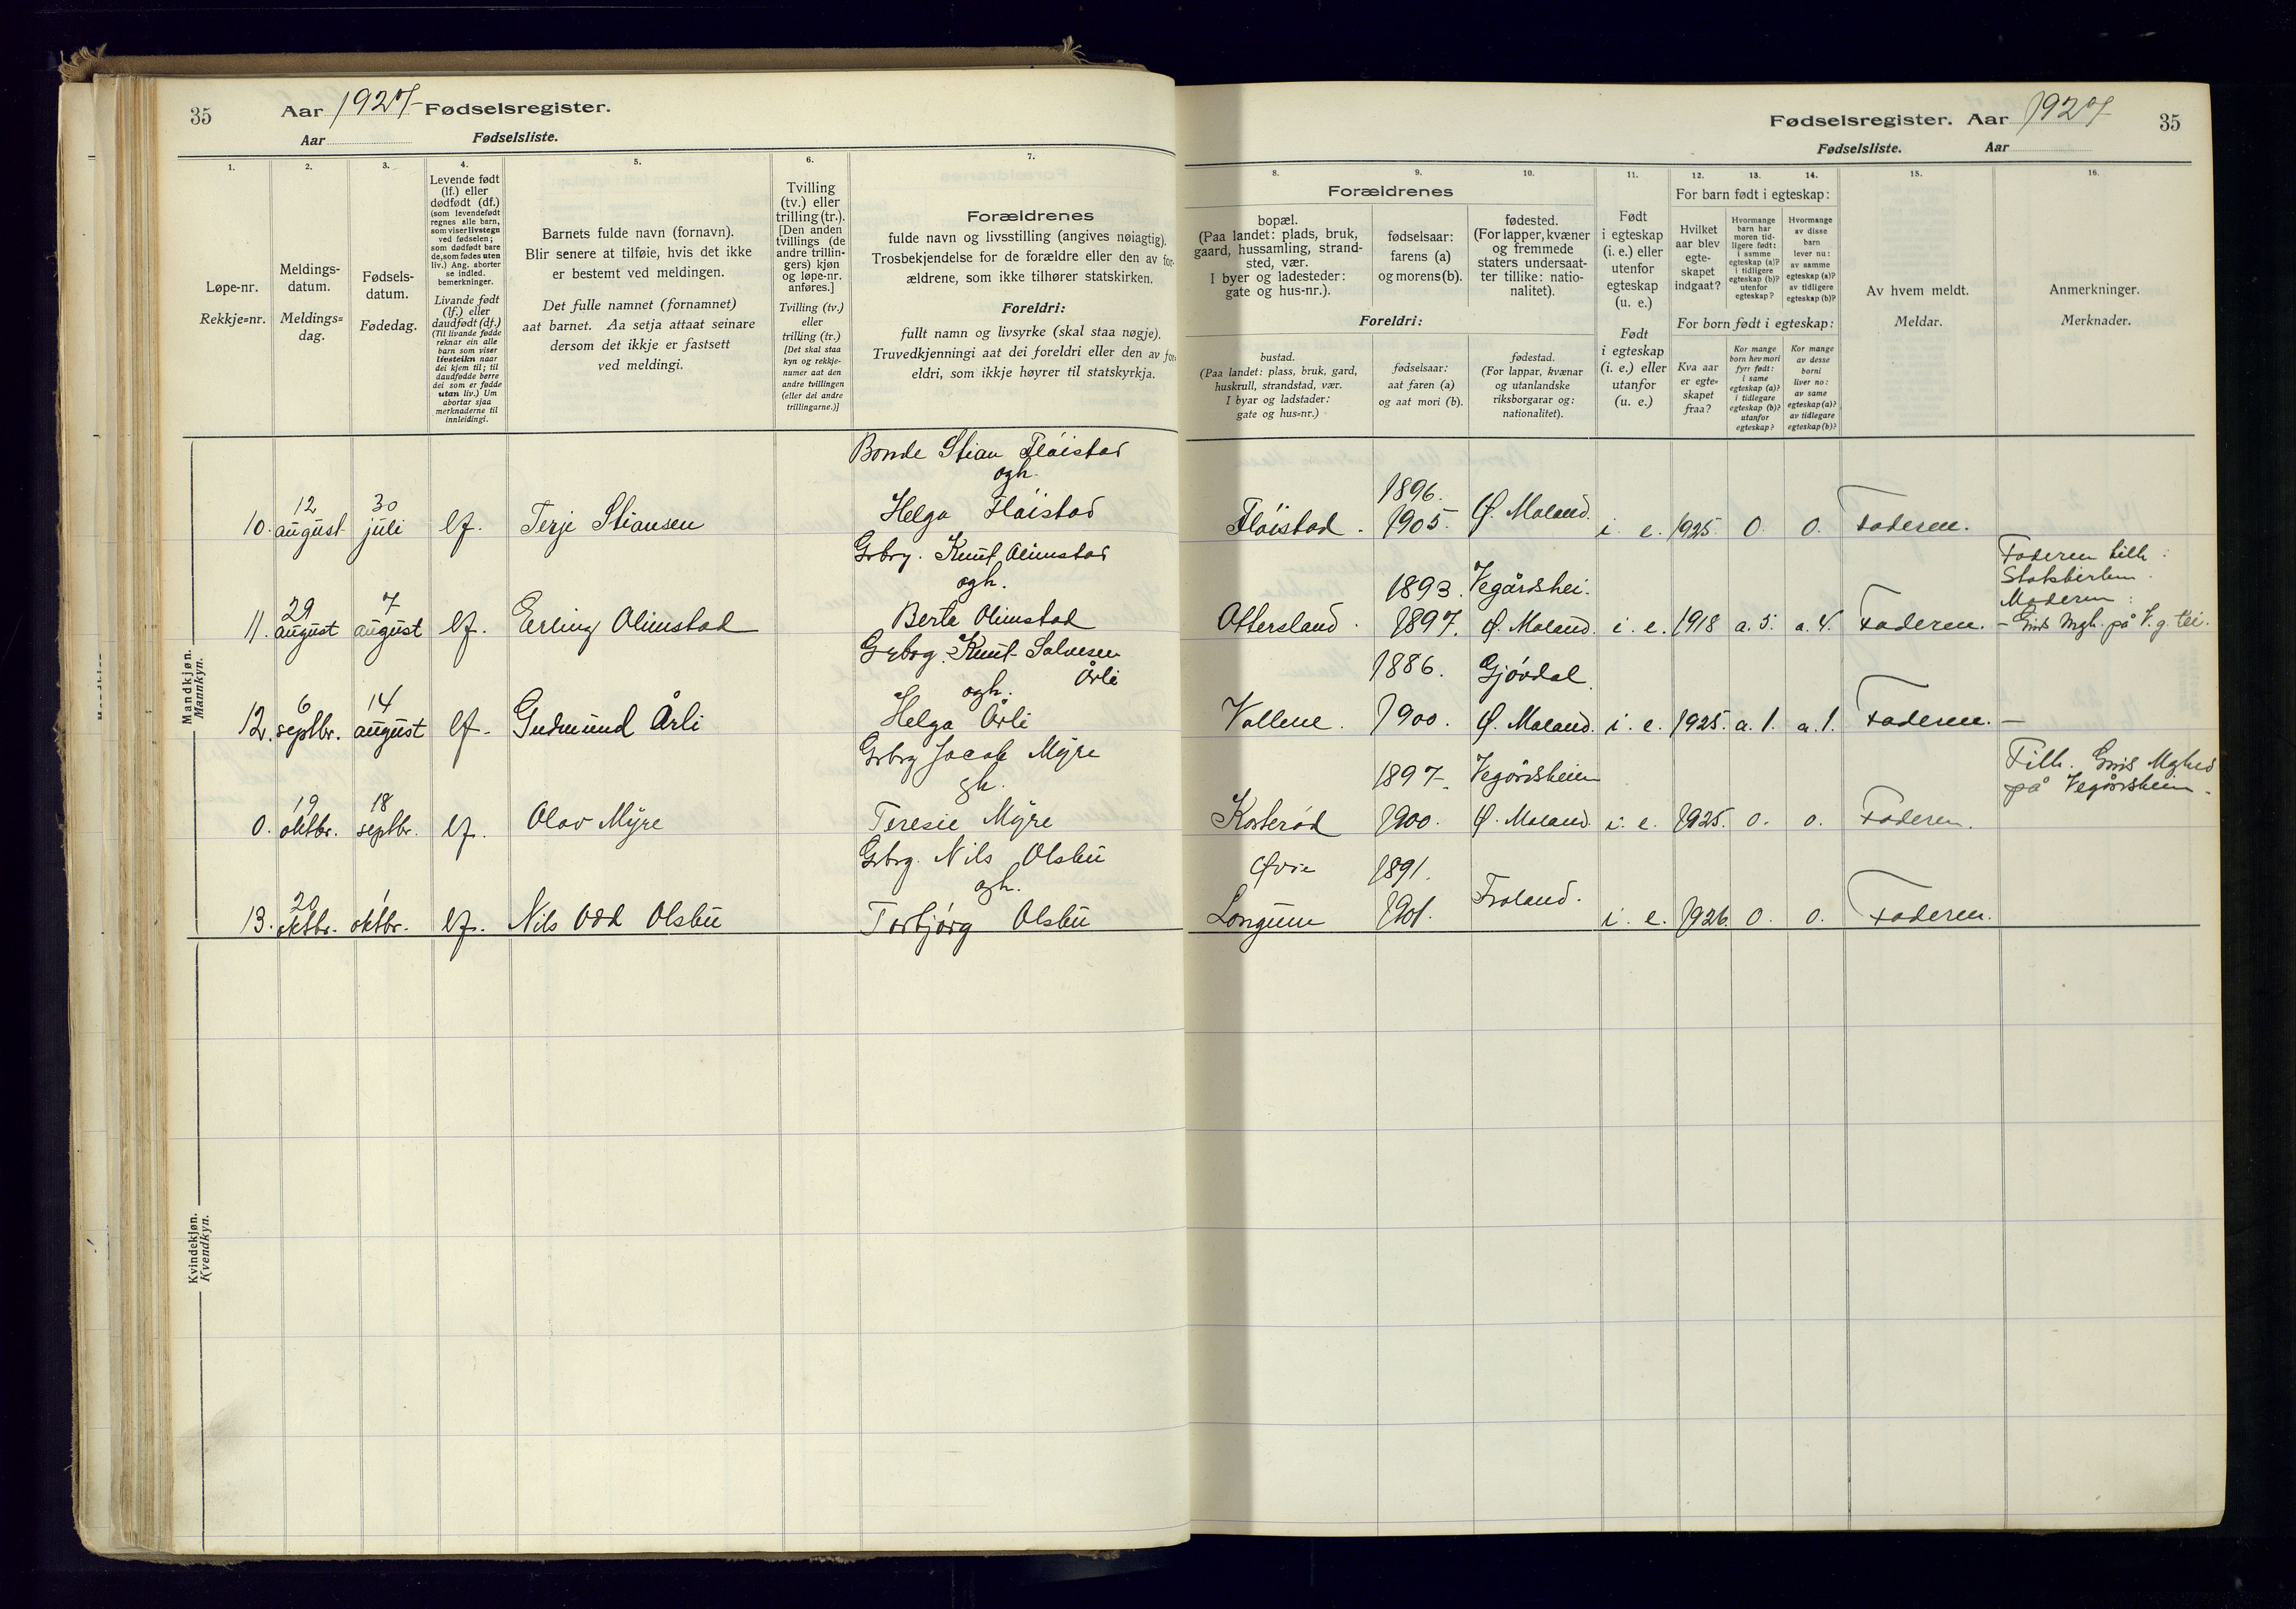 35
Aar 1927 Fødselsregister.
Aar Fødselsliste.
1.
2.
3.
4.
5.
6.
7.
Løpe-nr.
Rekkje=nr.
Meldings-
datum.
Meldings=
dag.
Fødsels-
datum.
Fødedag.
Levende født
(lf.) eller
dødfødt (df.)
(som levendefødt
regnes alle barn,
som viser livstegn
ved fødselen;
som dødfødt bare
de, som fødes uten
liv.) Ang. aborter
se indled.
bemerkninger.
Livande født
(lf.) eller
daudfødt (df.)
(Til livande fødde
reknar ein alle
barn som viser
livsteikn naar
dei kjem til; til
daudfødde berre
dei som er fødde
utan liv.) Um
abortar sjaa
merknaderne til
innleidingi.
Barnets fulde navn (fornavn).
Blir senere at tilføie, hvis det ikke
er bestemt ved meldingen.
Det fulle namnet (fornamnet)
aat barnet. Aa setja attaat seinare
dersom det ikkje er fastsett
ved meldingi.
Tvilling
(tv.) eller
trilling (tr.).
[Den anden
tvillings (de
andre trillin-
gers) kjøn
og løpe-nr.
anføres.]
Tvilling (tv.)
eller
trilling (tr.)
[Det skal staa
kyn og rekkje-
numer aat den
andre tvillingen
(eller dei andre
trillingarne.)]
Forældrenes
fulde navn og livsstilling (angives nøiagtig).
Trosbekjendelse for de forældre eller den av for-
ældrene, som ikke tilhører statskirken.
Foreldri:
fullt namn og livsyrke (skal staa nøgje).
Truvedkjenningi aat dei foreldri eller den av for-
eldri, som ikkje høyrer til statskyrkja.
Mandkjøn.
Mannkyn.
Bonde Stian Fløistad
ogh.
10. 12 august 30 juli lf. Terje Stiansen Helga Fløistad
Grbrg. Knut Olimstad
ogh.
11. 29 august 7 august lf. Erling Olimstad Berta Olimstad
Grbrg. Knut Salvesen
Årli
ogh.
12. 6 septbr. 14 august lf. Gudmund Årli Helga Årli
Grbrg Jacob Myre
gh.
0. 19 oktbr. 18 septbr. lf. Olav Myre Teresie Myre
Grbrg. Nils Olsbu
ogh.
13. 20 oktbr. 1 oktbr. lf. Nils Odd Olsbu Torbjørg Olsbu
Kvindekjøn.
Kvendkyn.
Fødselsregister. Aar 1927 35
Fødselsliste. Aar
8.
9.
10.
11.
12.
13.
14.
15.
16.
Forældrenes
bopæl.
(Paa landet: plads, bruk,
gaard, hussamling, strand-
sted, vær.
I byer og ladesteder:
gate og hus-nr.).
fødselsaar:
farens (a)
og morens (b).
fødested.
(For lapper, kvæner
og fremmede
staters undersaat-
ter tillike: natio-
nalitet).
Foreldri:
bustad.
(Paa landet: plass, bruk, gard,
huskrull, strandstad, vær.
I byar og ladstader:
gate og hus=nr.)
fødselsaar:
aat faren (a)
og aat mori (b).
fødestad.
(For lappar, kvænar
og utanlandske
riksborgarar og:
nationalitet).
Født
i egteskap
(i. e.) eller
utenfor
egteskap
(u. e.)
Født
i egteskap
(i. e.) eller
utanfor
(u. e.)
For barn født i egteskap:
Hvilket
aar blev
egte-
skapet
indgaat?
Hvormange
barn har
moren tid-
ligere født:
i samme
egteskap (a)?
i tidligere
egteskap (b)?
utenfor
egteskap?
Hvormange
av disse
barn
lever nu:
av samme
egteskap (a)?
av tidligere
egteskap (b)?
For born født i egteskap:
Kva aar
er egte=
skapet
fraa?
Kor mange
born hev mori
fyrr født:
i same
egteskap (a)?
i tidlegare
egteskap (b)?
utanfor
egteskap?
Kor mange
av desse
borni
liver no:
av same
egteskap (a)?
av tidlegare
egteskap (b)?
Av hvem meldt.
Meldar.
Anmerkninger.
Merknader.
1896.
Fløistad. 1905. Ø. Moland. i. e. 1925. 0. 0. Faderen.
Faderen tilh:
Statskirken.
Moderen:
1893. Vegårshei.
Ottersland. 1897. Ø. Moland. i. e. 1918 a. 5. a. 4. Faderen. - på V.g.hei.
1886. Gjövdal.
Vollene. 1900. Ø. Moland. i. e. 1925. a. 1. a. 1. Faderen. —
1897. Vegårsheien Tilh.
på Vegårsheien.
Kosterød 1900. Ø. Moland. i. e. 1925. 0. 0. Faderen.
Øvre 1891.
Froland.
Longum 1901. i. e. 1926. 0. 0. Faderen.